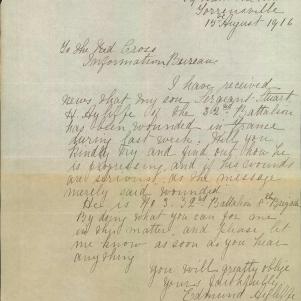 Torrensville
15th August 1916
To the Red Cross
Information Bureau
I have received
news that my son Sergeant Stuart
H. of the 32nd Battalion
has been wounded in France
during last week. Will you
kindly try and find out how he
is progressing, and if his wounds
are serious, as the message
merely said wounded.
He is No 3. 32nd Battalion 8th Brigade
By doing what you can for me
in this matter, and please let
me know as soon as you hear
anything
you will greatly oblige
Yours faithfully
Edmund